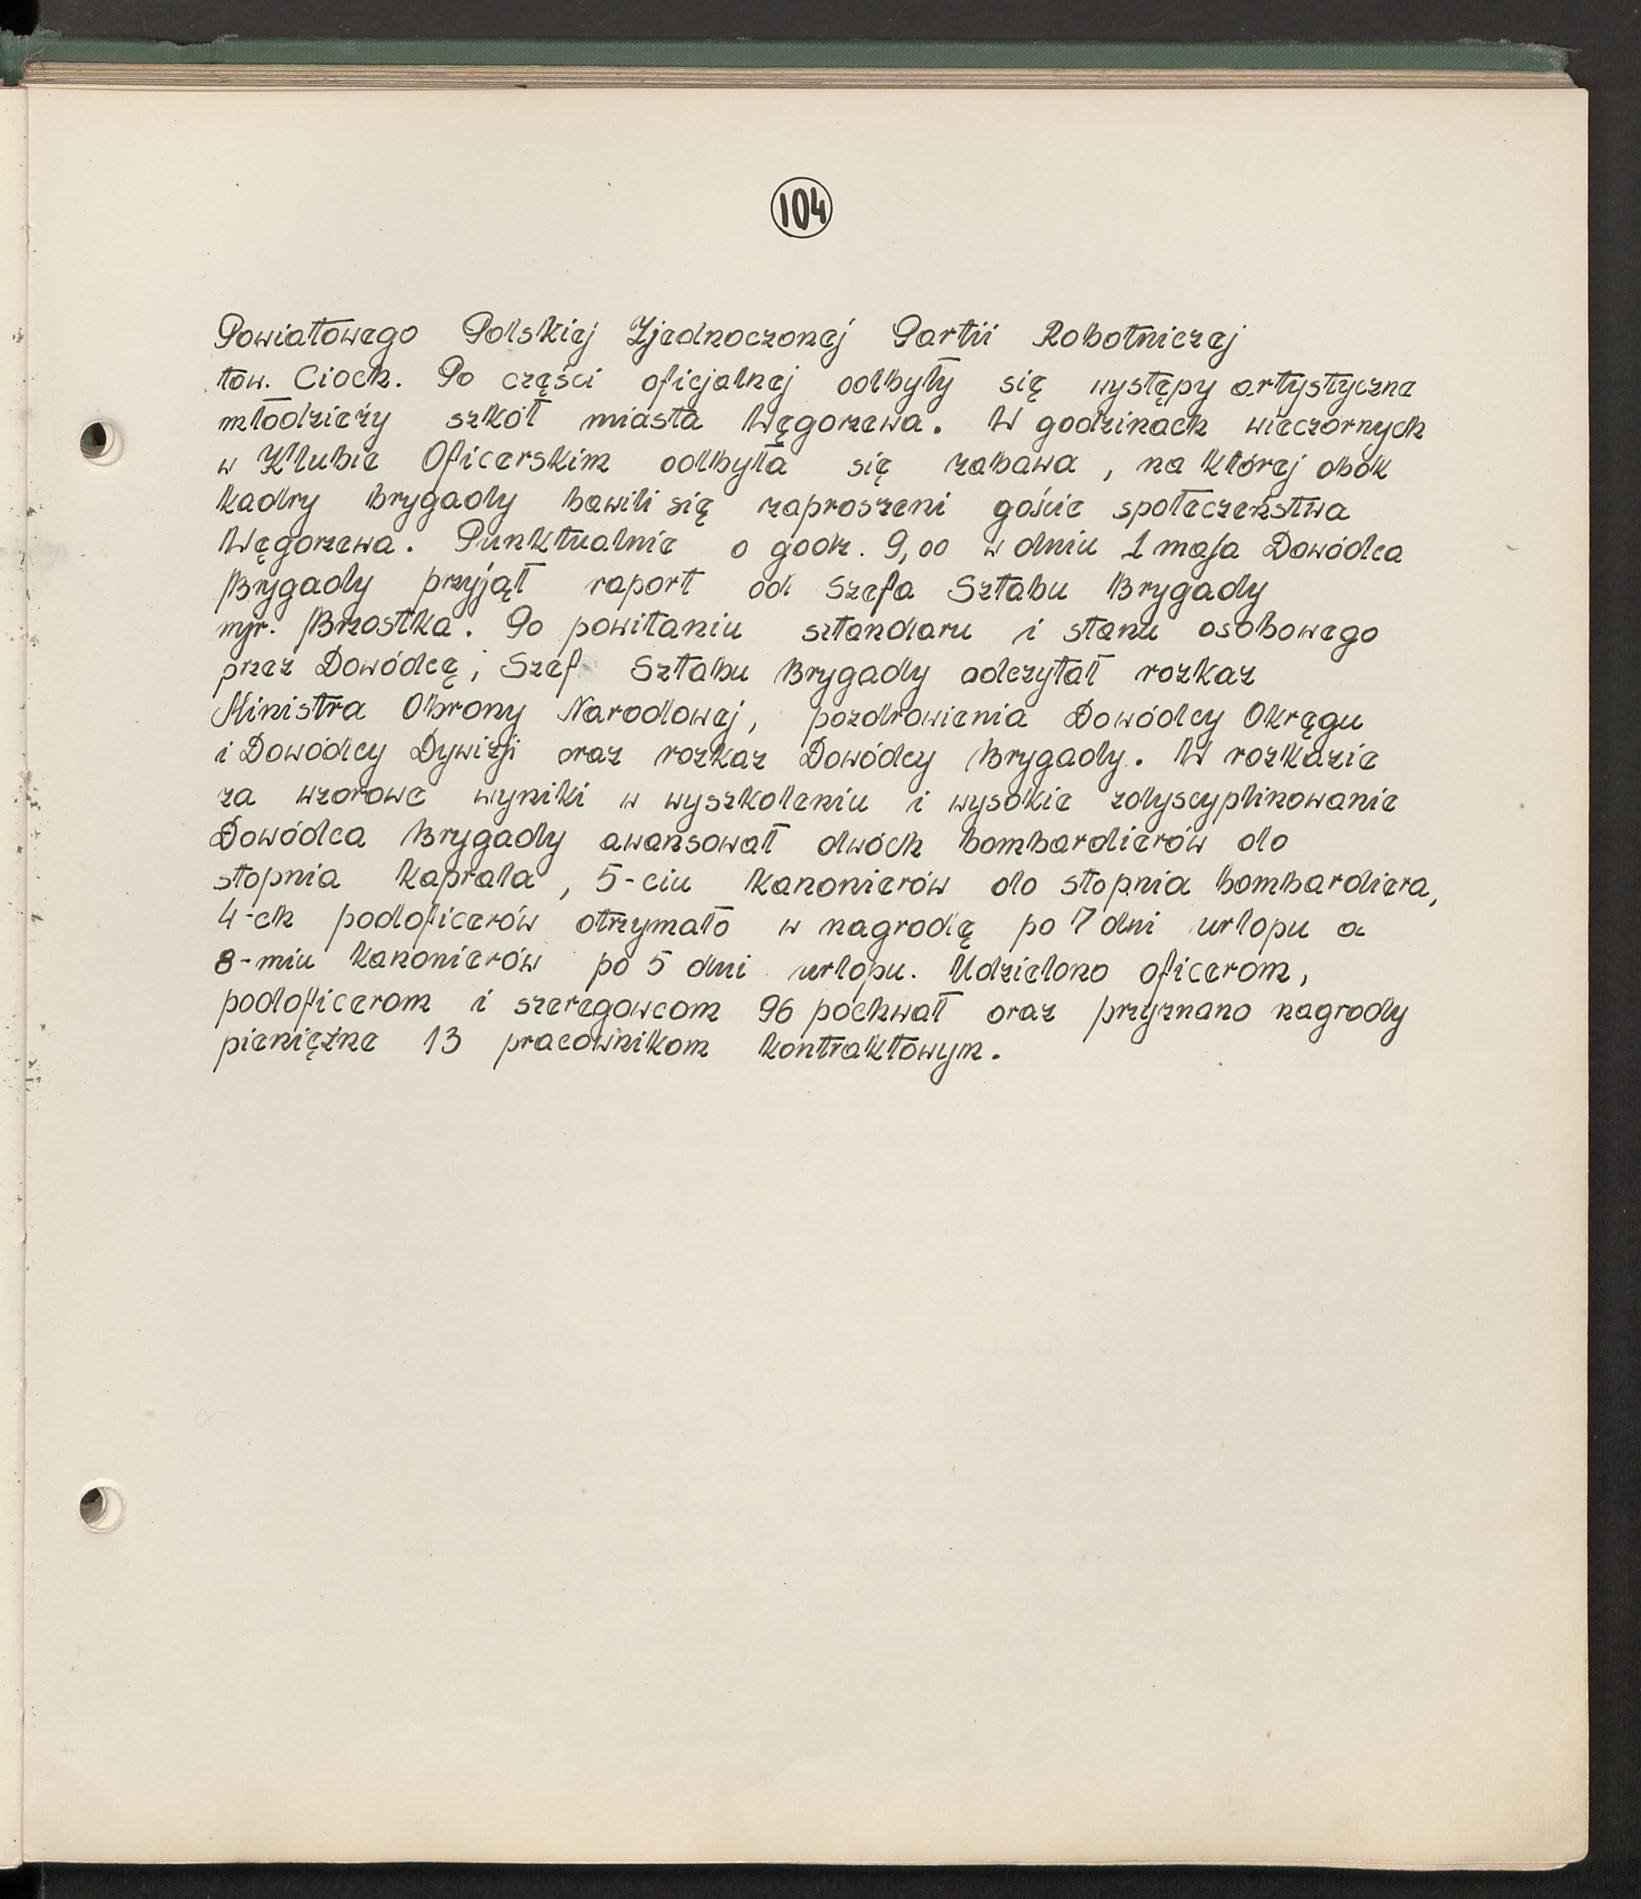 104
Powiatowego Polskiej Zjednoczonej Partii Robotniczej
tow. Cioch. Po części oficjalnej odbyły się występy artystyczne
młodzieży szkół miasta Węgorzewa. W godzinach wieczornych
w Klubie Oficerskim odbyła się zabawa, na której obok
kadry brygady bawili się zaproszeni goście społeczeństwa
Węgorzewa. Punktualnie o godz. 9,00 w dniu 1 maja Dowódca
Brygady przyjął raport od Szefa Sztabu Brygady
mjr. Brzostka. Po powitaniu sztandaru i stanu osobowego
przez Dowódcę, Szef Sztabu Brygady odczytał rozkaz
Ministra Obrony Narodowej, pozdrowienia Dowódcy Okręgu
i Dowódcy Dywizji oraz rozkaz Dowódcy Brygady. W rozkazie
za wzorowe wyniki w wyszkoleniu i wysokie zdyscyplinowanie
Dowódca Brygady awansował dwóch bombardierów do
stopnia kaprala, 5-ciu kanonierów do stopnia bombardiera,
4-ch podoficerów otrzymało w nagrodę po 7 dni urlopu a
8-miu kanonierów po 5 dni urlopu. Udzielono oficerom,
podoficerom i szeregowcom 96 pochwał oraz przyznano nagrody
pieniężne 13 pracownikom kontraktowym.